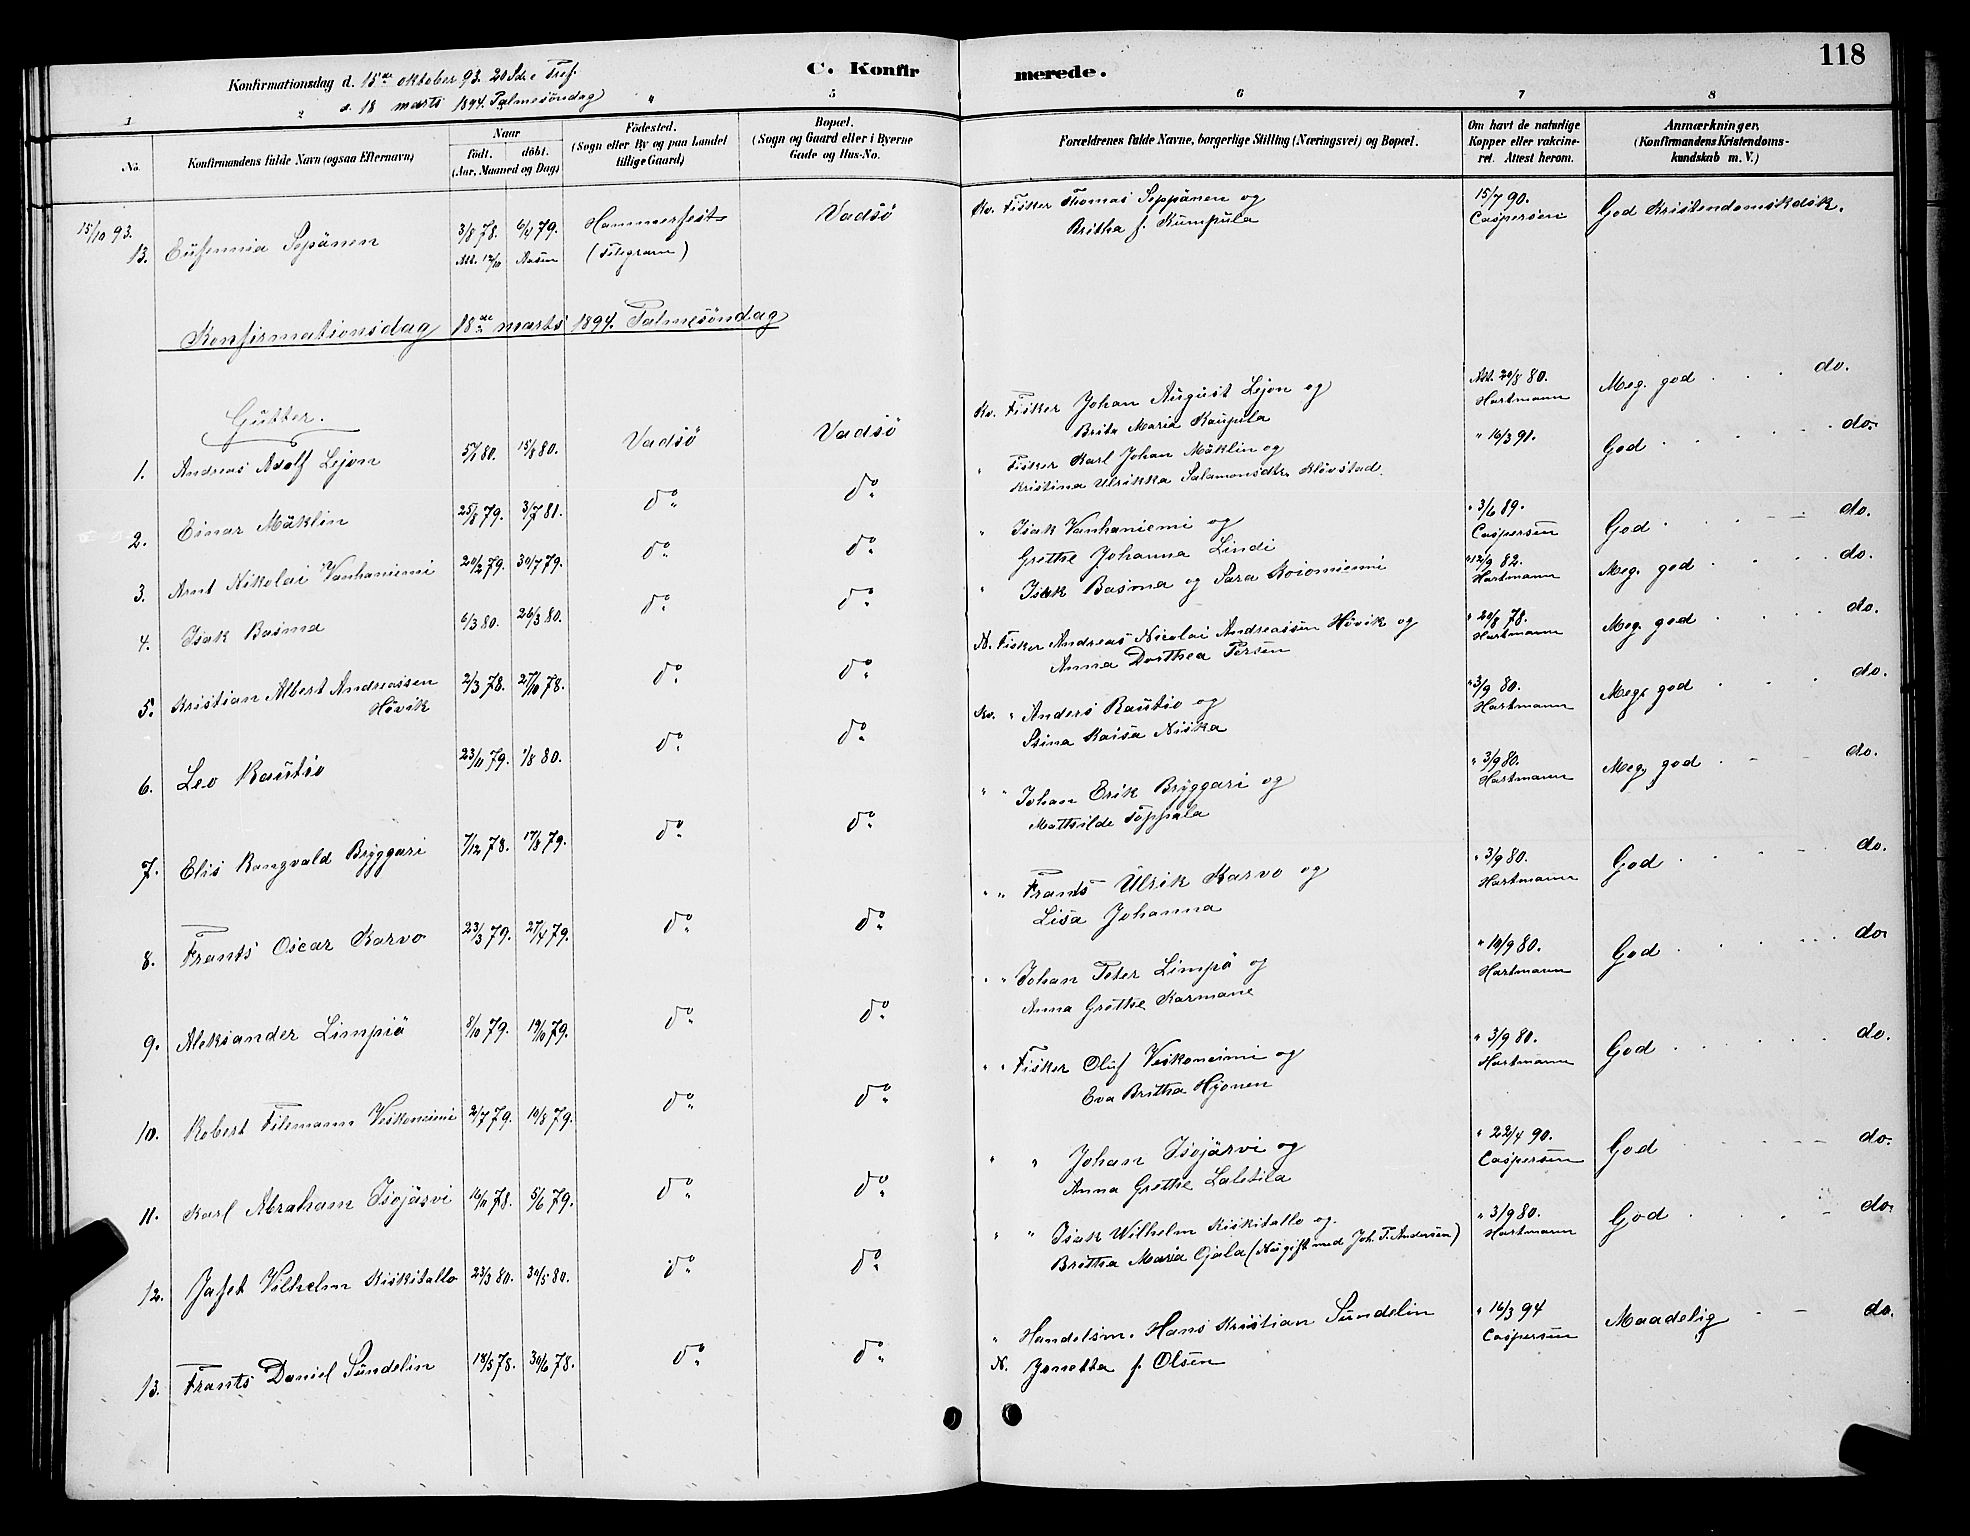 118
C. Konfirmerede.
Konfirmationsdag d. 15de oktober 93. 20 Sde Tref.
d. 18 marts 1894. Palmesöndag
1 2 5 6 7 8
No. Konfirmandens fulde Navn (ogsaa Efternavn) Naar födt. döbt. (Aar, Maaned og Dag) Födested. (Sogn eller By og paa Landet tillige Gaard) Bopæl. (Sogn og Gaard eller i Byerne Gade og Hus-No. Forældrenes fulde Navne, borgerlige Stilling (Næringsvei) og Bopæl. Om havt de naturlige Kopper eller vakcineret. Attest herom. Anmærkninger. (Konfirmandens Kristendomskundskab m. V.)
15/10 93.
13. Eufemia Sepänen 3/8 78. 6/4 79. Hammerfest Vadsö Kv. Fisker Thomas Seppänen og 15/7 90. God Kristendomskdsk.
(Telegram) Britha f. Kumpula Caspersen
Konfirmationsdag 18de marts 1894. Palmesöndag
Gutter.
1. Andreas Adolf Lejon 80. 15/8 80. Vadsö Vadsö Kv. Fisker Johan August Lejon og Att. 20/8 80. Meg. god . . . do.
Brita Maria Kaupula Hartmann
2. Einar Mäklin 25/8 79. 3/7 81. do do " Fisker Karl Johan Mäklin og " 16/3 91. God . . . do.
Kristina Ulrikka Salamonsdtr. Klövstad.
3. Arnt Nikolai Vanhaniemi 20/2 79. 30/7 79. do do " Isak Vanhaniemi og " 3/6 89. God . . . do.
Grethe Johanna Lindi Caspersen
4. Isak Basma 6/3 80. 26/3 80. do do " Isak Basma og Sara Koiomiemi " 12/9 82. Meg. god . . . do.
Hartmann
5. Kristian Albert Andreassen 2/3 78. 27/10 78. do do N. Fisker Andreas Nicolai Andreassen Hövik og " 20/8 78. Meg. god . . . do.
Hövik Anna Dorthea Persen Hartmann
6. Leo Rautio 23/11 79. 1/8 80. do do Kv. " Anders Rautio og " 3/9 80. Meg. god . . . do.
Stina Kaisa Niska Hartmann
7. Elis Rangvald Bryggari 7/12 78. 17/8 79. do do " " Johan Erik Bryggari og " 3/9 80. Meg. god . . . do.
Mathilde Toppala Hartmann
8. Frants Oscar Karvo 23/3 79. 27/4 79. do do " " Frants Ulrik Karvo og " 3/9 80. God . . . do.
Lisa Johanna Hartmann
9. Aleksander Limpiö 8/10 79. 19/10 79. do do " " Johan Peter Limpö og " 10/9 80. God . . . do.
Anna Grethe Karmane Hartmann
10. Robert Filemann Veskoniemi 2/7 79. 10/8 79. do do " " Fisker Oluf Veskoneimi og " 3/9 80. God . . . do.
Eva Britha Hyonen Hartmann
11. Karl Abraham Isojärvi 16/11 78. 5/6 79. do do " " Johan Isojärvi og " 22/4 90. God . . . do.
Anna Grethe Laletila Caspersen
12. Jafet Vilhelm Kiskitallo 23/3 80. 30/5 80. do do " " Isak Wilhelm Kiskitallo og " 3/9 80. God . . . do.
Britha Maria Ojala (Nu gift med Joh. F. Andersen) Hartmann
13. Frants Daniel Sundelin 14/5 78. 30/6 78. do do " Handelsm. Hans Kristian Sundelin " 16/3 94 Maadelig . . do.
N. Jonetta f. Olsen Caspersen